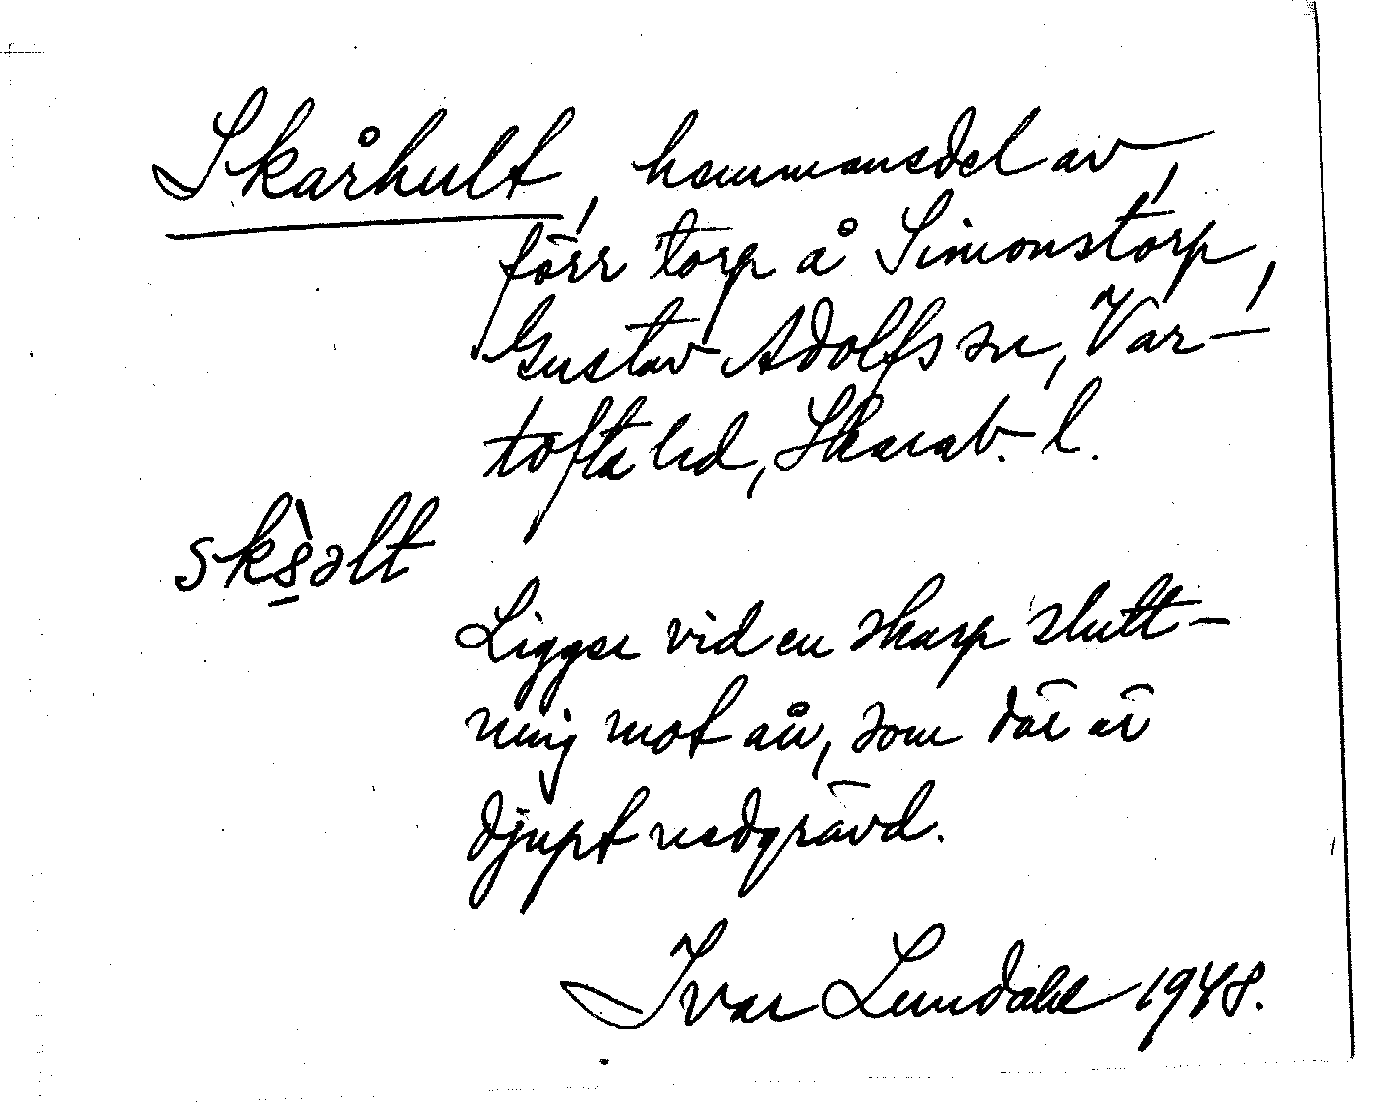 Skårhult, hemmansdel av,
förr torp å Simonstorp,
Gustav Adolfs sn, Var-
tofta hd, Skarab. l.
Ligger vid en skarp slutt-
ning mot ån, som där är
djupt nedgrävd.
Ivar Lundahl 1948.